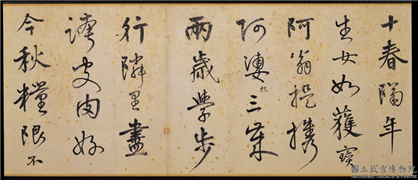 十春隔年
生女如獲寶
阿翁提携
阿婆抱三
兩歲學步
行隣里盡
誇皮肉好
今秋糧限不
國立故宮博物院